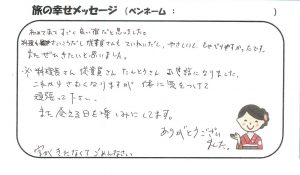 旅の幸せメッセージ（ペンネーム：　　　　　）
初めて来てすごく良い宿だと思いました。
料理も おいしいし 従業員さんも ていねいだし、やさしいし しゃべりやすかったです。
また ぜひきたいと思いました。
料理長さん 従業員さん たんとうさん お世話になりました。
これからさむくなりますが 体に気をつけて
頑張って下さい。
また会える日を楽しみにしてます。
ありがとうござい
ました。
字がきたなくてごめんなさい